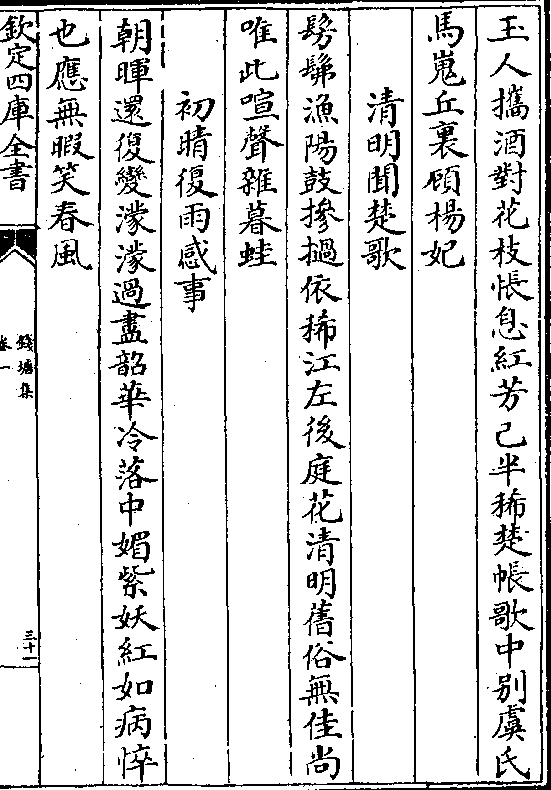 玉人攜酒對花枝悵息紅芳已半稀楚帳歌中别虞氏
馬嵬丘裏頋楊妃
清明聞楚歌
髣髴漁陽鼓摻撾依稀江左後庭花清明舊俗無佳尚
唯此喧聲雜暮蛙
初晴復雨感事
朝暉還復變濛濛過盡韶華冷落中媚紫妖紅如病悴
也應無暇笑春風
欽定四庫全書
錢塘集
卷一
三十一